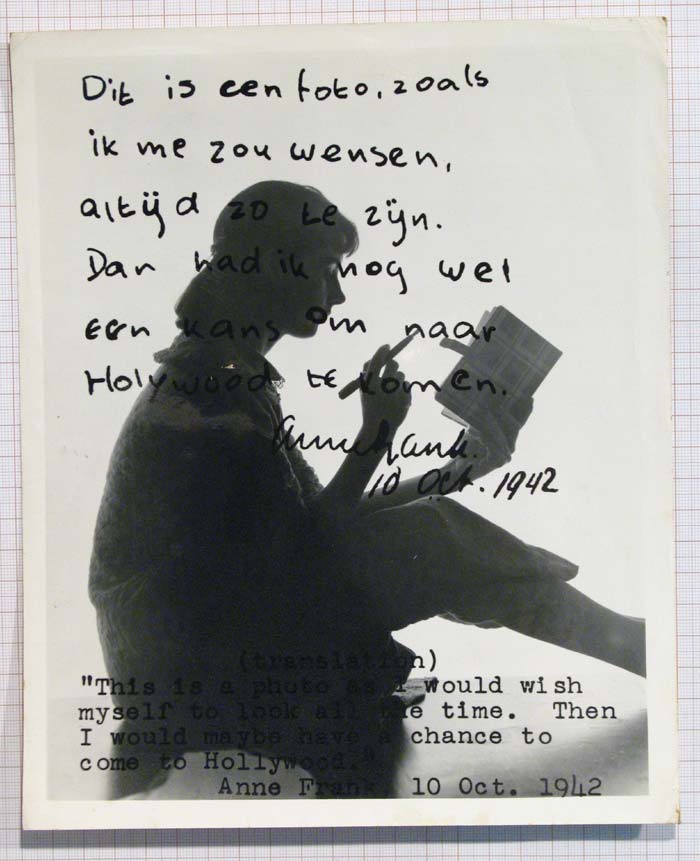 Dit is een foto, zoals
ik me zou wensen,
altijd zo te zijn.
Dan had ik nog wel
een kans om naar
Holywood te komen.
Annefrank.
10 Oct. 1942
(translation)
"This is a photo as I would wish
myself to look all the time. Then
I would maybe have a chance to
come to Hollywood."
Anne Frank, 10 Oct. 1942